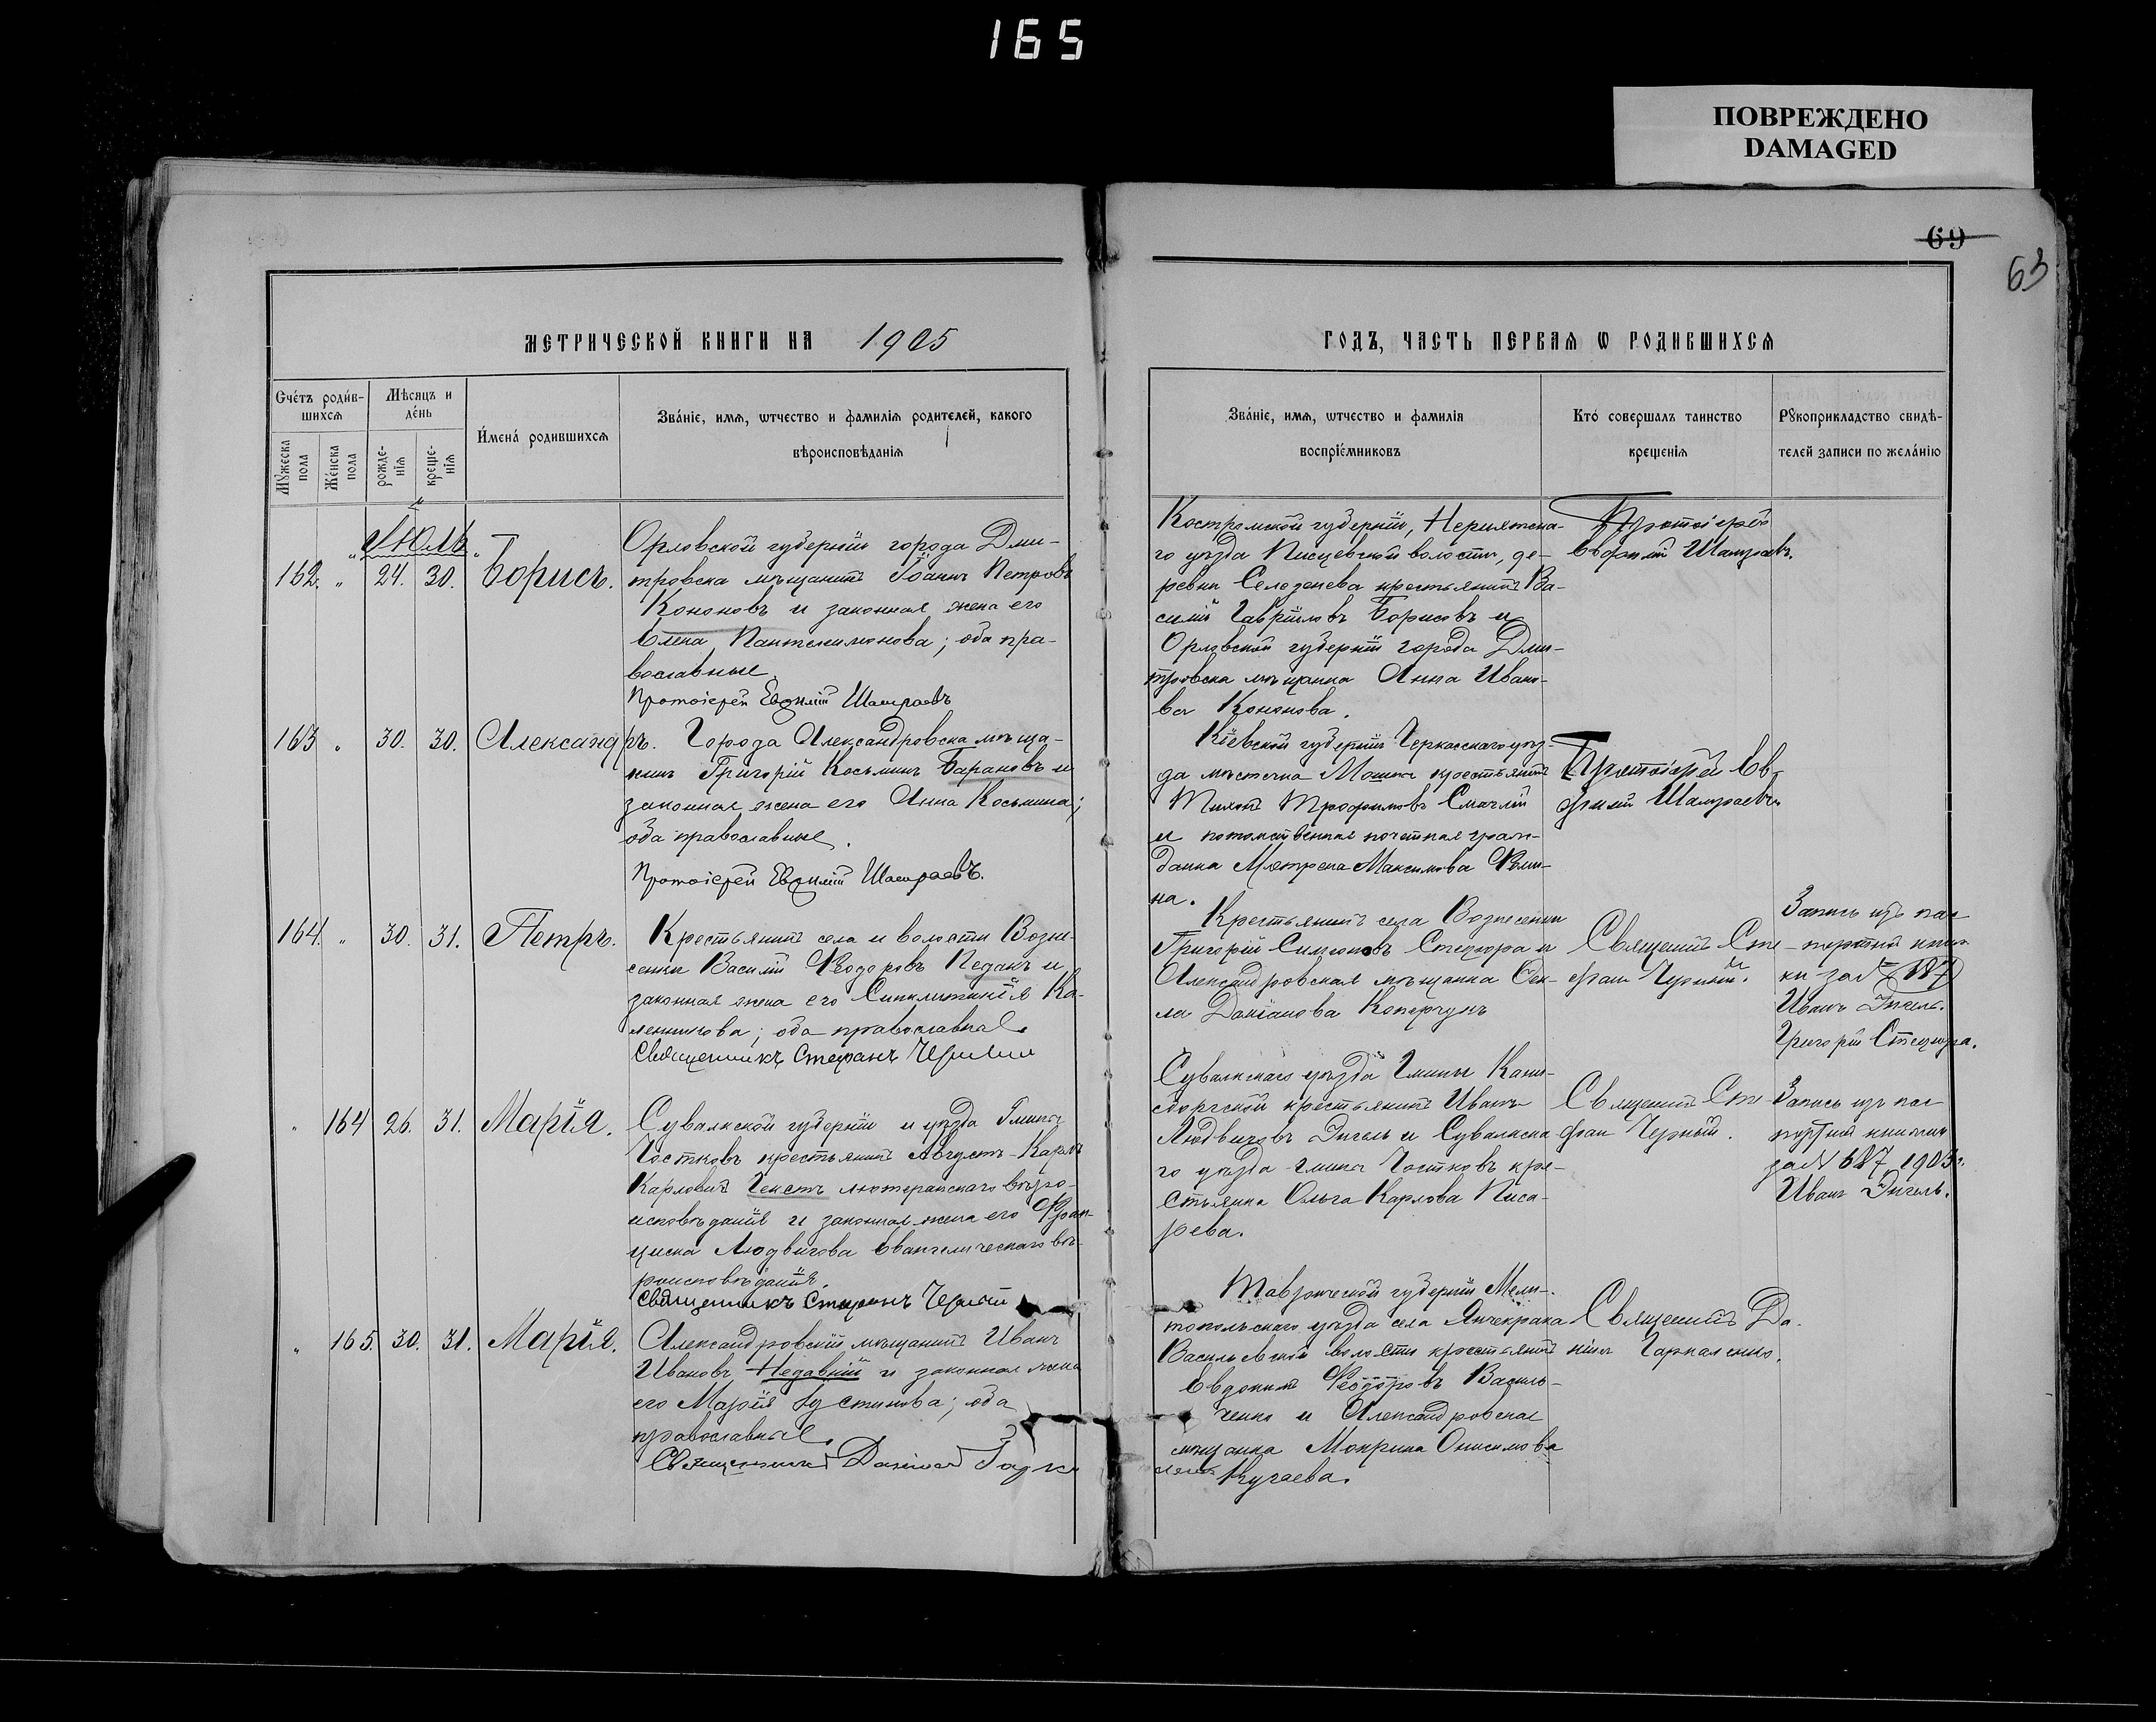 165
ПОВРЕЖДЕНО
DAMAGED
69
63
МЕТРИЧЕСКОЙ КНИГИ НА 1905
ГОДЪ, ЧАСТЬ ПЕРВАЯ Ѡ РОДИВШИХСЯ
Счéтъ роди́в-
шихся
Мѣсяцъ и
де́нь
Мꙋжеска
пола
Же́нска
пола
рожде-
нія
креще-
нія
И́мена́ родившихся
Зва́ніе, имя, ѿтчество и фамилія родителей, какого
вѣроисповѣданія
Зва́ніе, имя, ѿтчество и фамилія
воспрiе́мниковъ
Кто́ совершалъ таинство
крещенія
Рꙋкоприкладство свидѣ-
телей записи по жела́нію
Іюль
162. " 24. 30. Борисъ.
Орловской губерніи города Дми-
тровска мѣщанинъ Іоаннъ Петровъ
Кононовъ и законная жена его
Елена Пантелеимонова; оба пра-
вославные.
Протоіерей Евѳимій Шамраевъ
Костромской губерніи,
го уѣзда Писцевской волости, де-
ревни Селезенева крестьянинъ Ва-
силій Гавріиловъ Борисовъ и
Орловской губерніи города Дми-
тровска мѣщанка Анна Ивано-
ва Кононова.
Протоіерей
Евфимій Шамраевъ.
163 " 30. 30. Александръ.
Города Александровска мѣща-
нинъ Григорій Косьминъ Барановъ и
законная жена его Анна Косьмина;
оба православные.
Протоіерей Евѳимій Шамраевъ.
Кіевской губерніи Черкасскаго уѣз-
да мѣстечка Мошны крестьянинъ
Тихонъ Трофимовъ Смаглій
и потомственная почетная граж-
данка Матрена Максимова
на.
Протоіерей Ев-
фимій Шамраевъ
164. " 30. 31. Петръ.
Крестьянинъ села и волости Возне-
сенки Василій Ѳеодоровъ Педакъ и
законная жена его Синклитикія Ка-
леникова; оба православные.
Священникъ Стефанъ Черный
Крестьянинъ села Вознесенки
Григорій Симеоновъ Стецюра и
Александровская мѣщанка Фек-
ла Даміанова
Священникъ Сте-
фанъ Черный.
Запись изъ пас-
портной книж-
ки за № 687
Иванъ Энгель.
Григорій Стецюра.
" 164 26. 31. Марія.
Сувалкской губерніи и уѣзда Гмины
Чостковъ крестьянинъ Августъ-Карлъ
Карловичъ Гекстъ лютеранскаго вѣро-
исповѣданія и законная жена его Фран-
циска Людвигова Евангелическаго вѣ-
роисповѣданія.
Священникъ Стефанъ Черный
Сувалкскаго уѣзда Гмины
крестьянинъ Иванъ
Людвиговъ Энгель и Сувалкска-
го уѣзда гмины Чостковъ кре-
стьянка Ольга Карлова Писа-
рева.
Священникъ Сте-
фанъ Черный.
Запись изъ пас-
портной книжки
за № 687 1905 г.
Иванъ Энгель.
" 165. 30. 31. Марія.
Александровскій мѣщанинъ Иванъ
Ивановъ Недавній и законная жена
его Марія Іустинова; оба
православные.
Священникъ Даніилъ
Таврической губерніи Мели-
топольскаго уѣзда села Янчекрака
Васильевской волости крестьянинъ
Евдокимъ Ѳеодоровъ Василь-
ченко и Александровская
мѣщанка Мокрина Онисимова
Кугаева.
Священникъ Да-
ніилъ Гаркаленко.